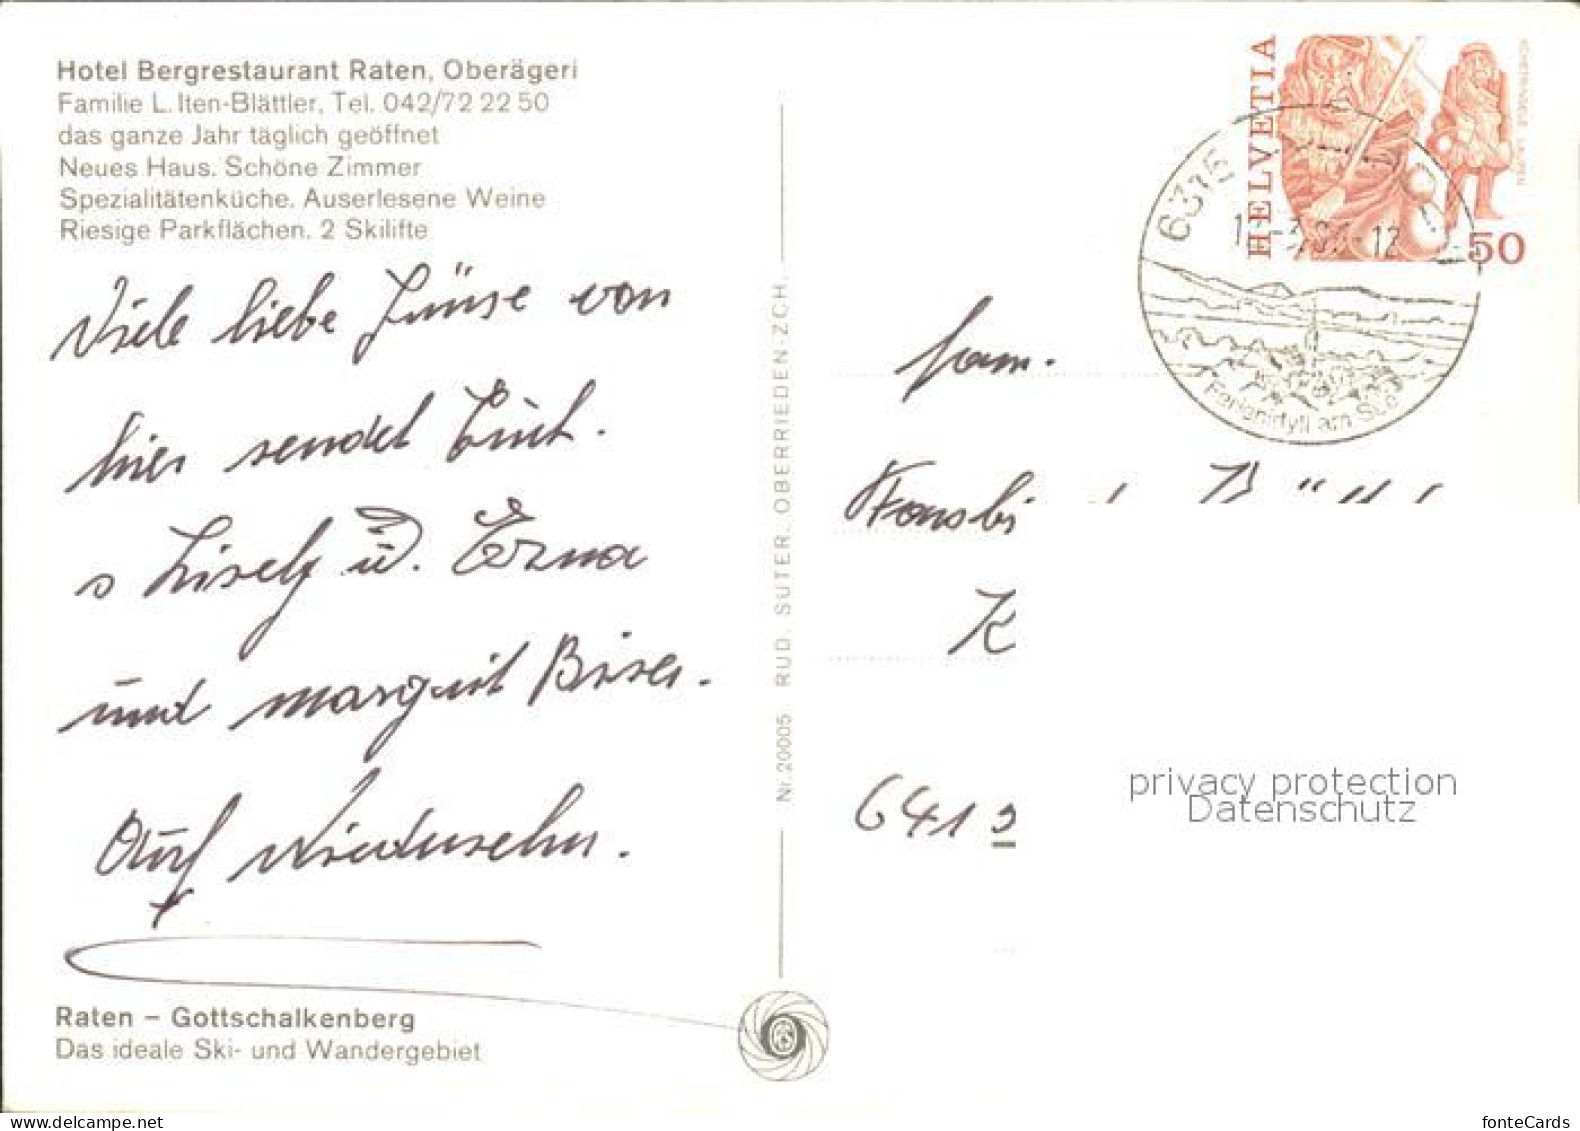 Hotel Bergrestaurant Raten, Oberägeri
Familie L. Iten-Blättler, Tel. 042/72 22 50
das ganze Jahr täglich geöffnet
Neues Haus. Schöne Zimmer
Spezialitätenküche. Auserlesene Weine
Riesige Parkflächen. 2 Skilifte
Viele liebe von
hier sendet Euch.
s Lisely u. Erna
und Margrit Biser.
Auf Wiedersehn.
Raten – Gottschalkenberg
Das ideale Ski- und Wandergebiet
Nr. 20005 RUD. SUTER, OBERRIEDEN-ZCH.
HELVETIA
50
6315
Ferienidyll am See
Fam.
K
641
privacy protection
Datenschutz
fonteCards